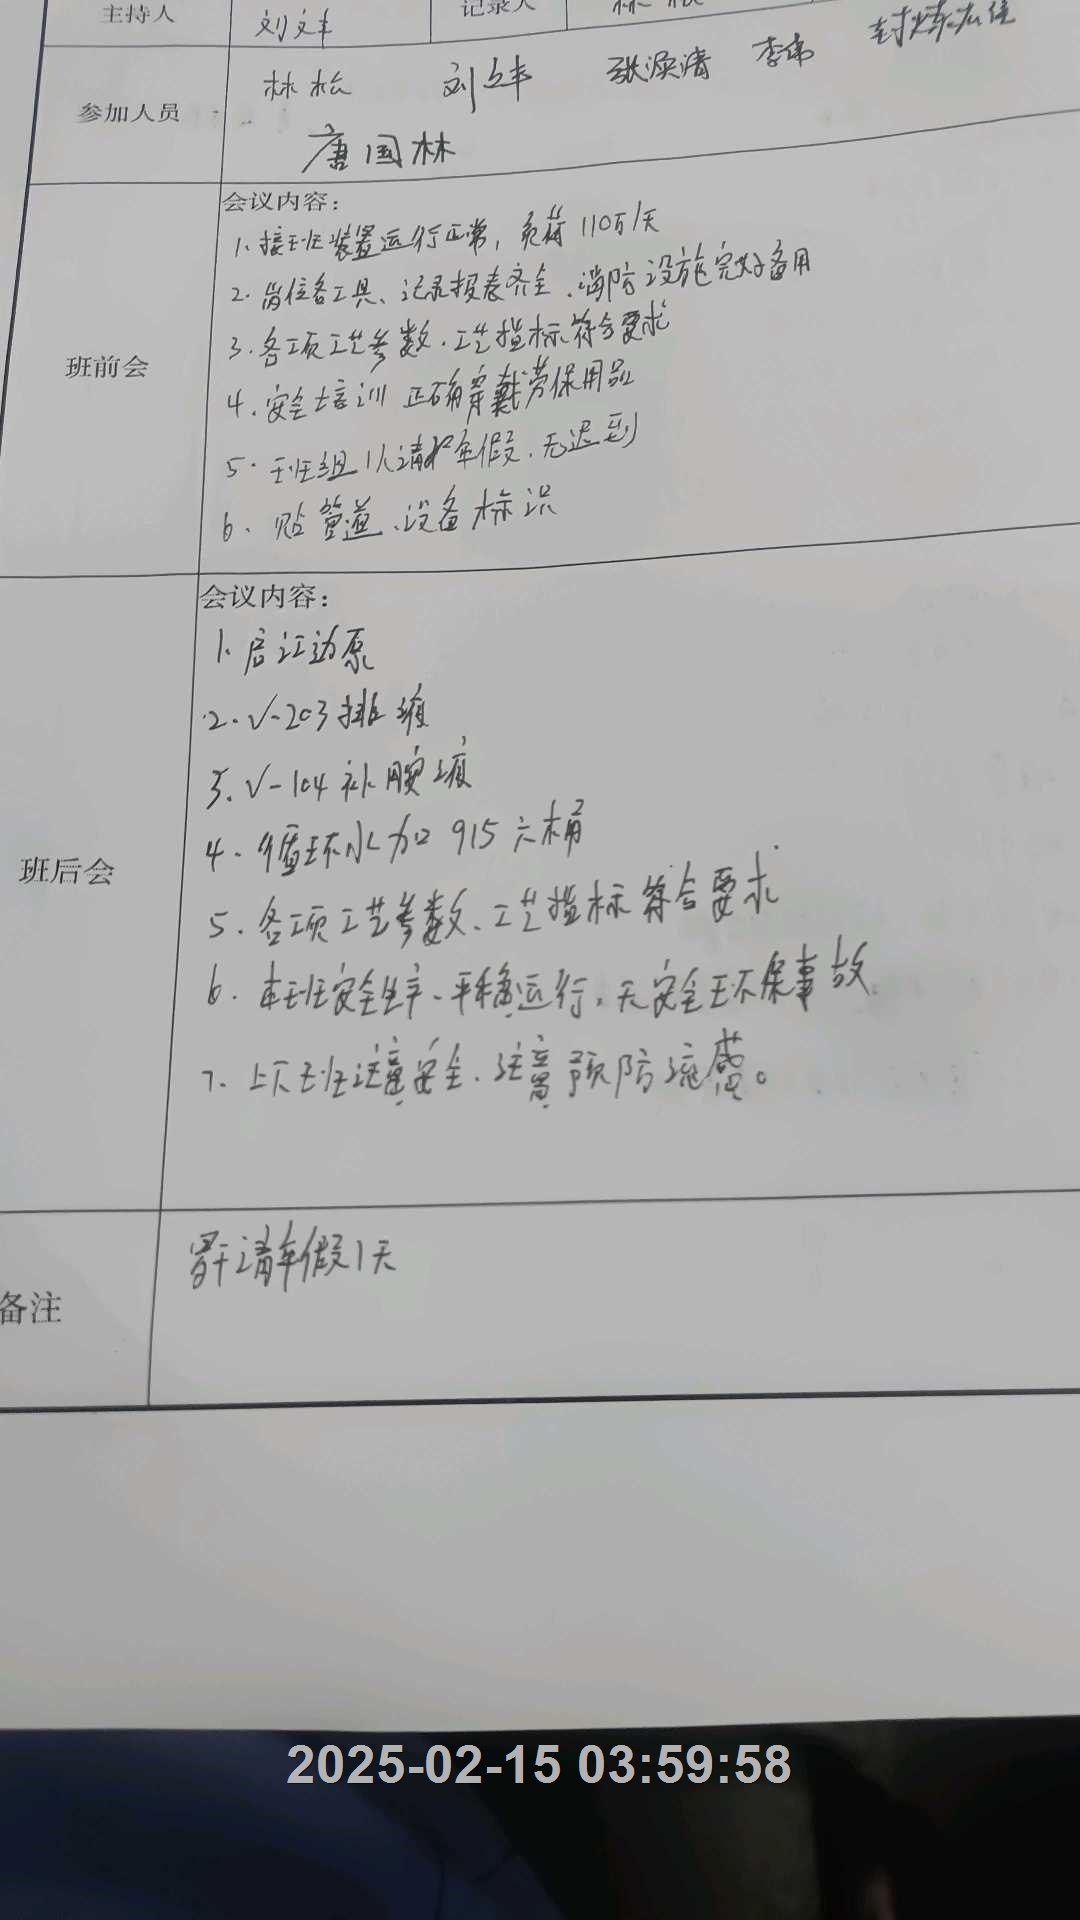 主持人 刘文丰 记录人 林松
参加人员 林松 刘文丰 张涣清 李伟
唐国林
班前会
会议内容：
1. 接班装置运行正常，负荷110万/天
2. 岗位各工具、记录报表齐全、消防设施完好备用
3. 各项工艺参数、工艺指标符合要求
4. 安全培训 正确穿戴劳保用品
5. 班组1人请年假、无迟到
6. 贴管道、设备标识
班后会
会议内容：
1. 启江边泵
2. V-203排液
3. V-104补胺液
4. 循环水加915六桶
5. 各项工艺参数、工艺指标符合要求
6. 本班安全生产、平稳运行，无安全环保事故
7. 上下班注意安全、注意预防流感。
备注
请年假1天
2025-02-15 03:59:58